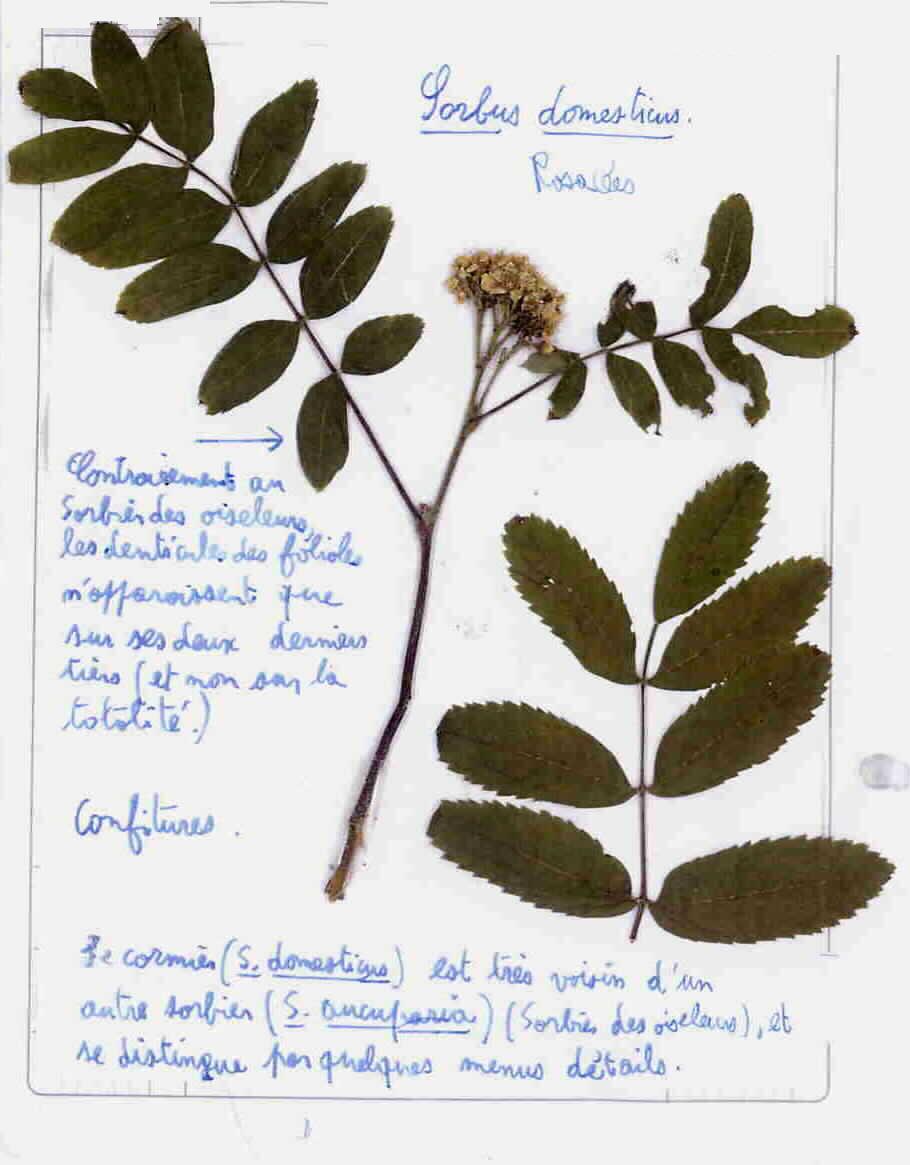 Sorbus domesticus.
Rosacées
Contrairement au
Sorbier des oiseleurs,
les denticules des folioles
n'apparaissent que
sur ses deux derniers
tiers (et non sur la
totalité.)
Confitures.
Le cormier (S. domesticus) est très voisin d'un
autre sorbier (S. aucuparia) (Sorbier des oiseleurs), et
se distingue par quelques menus détails.